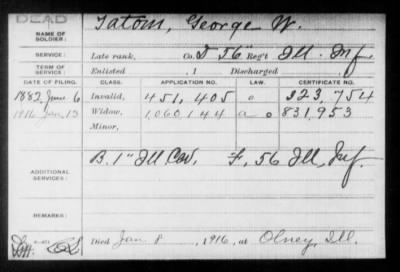 DEAD
NAME OF SOLDIER: Tatom, George W.
SERVICE: Late rank, Co. F 56" Reg't Ill. Inf.
TERM OF SERVICE: Enlisted , 1 Discharged , 1
DATE OF FILING. CLASS. APPLICATION NO. LAW. CERTIFICATE NO.
1882, June 6 Invalid, 451,405 323,754
1916 Jan 13 Widow, 1,060,144 831,953
Minor,
ADDITIONAL SERVICES: B. 1" Ill Cav. F, 56 Ill, Inf.
REMARKS:
Died Jan. 8, 1916, at Olney, Ill.